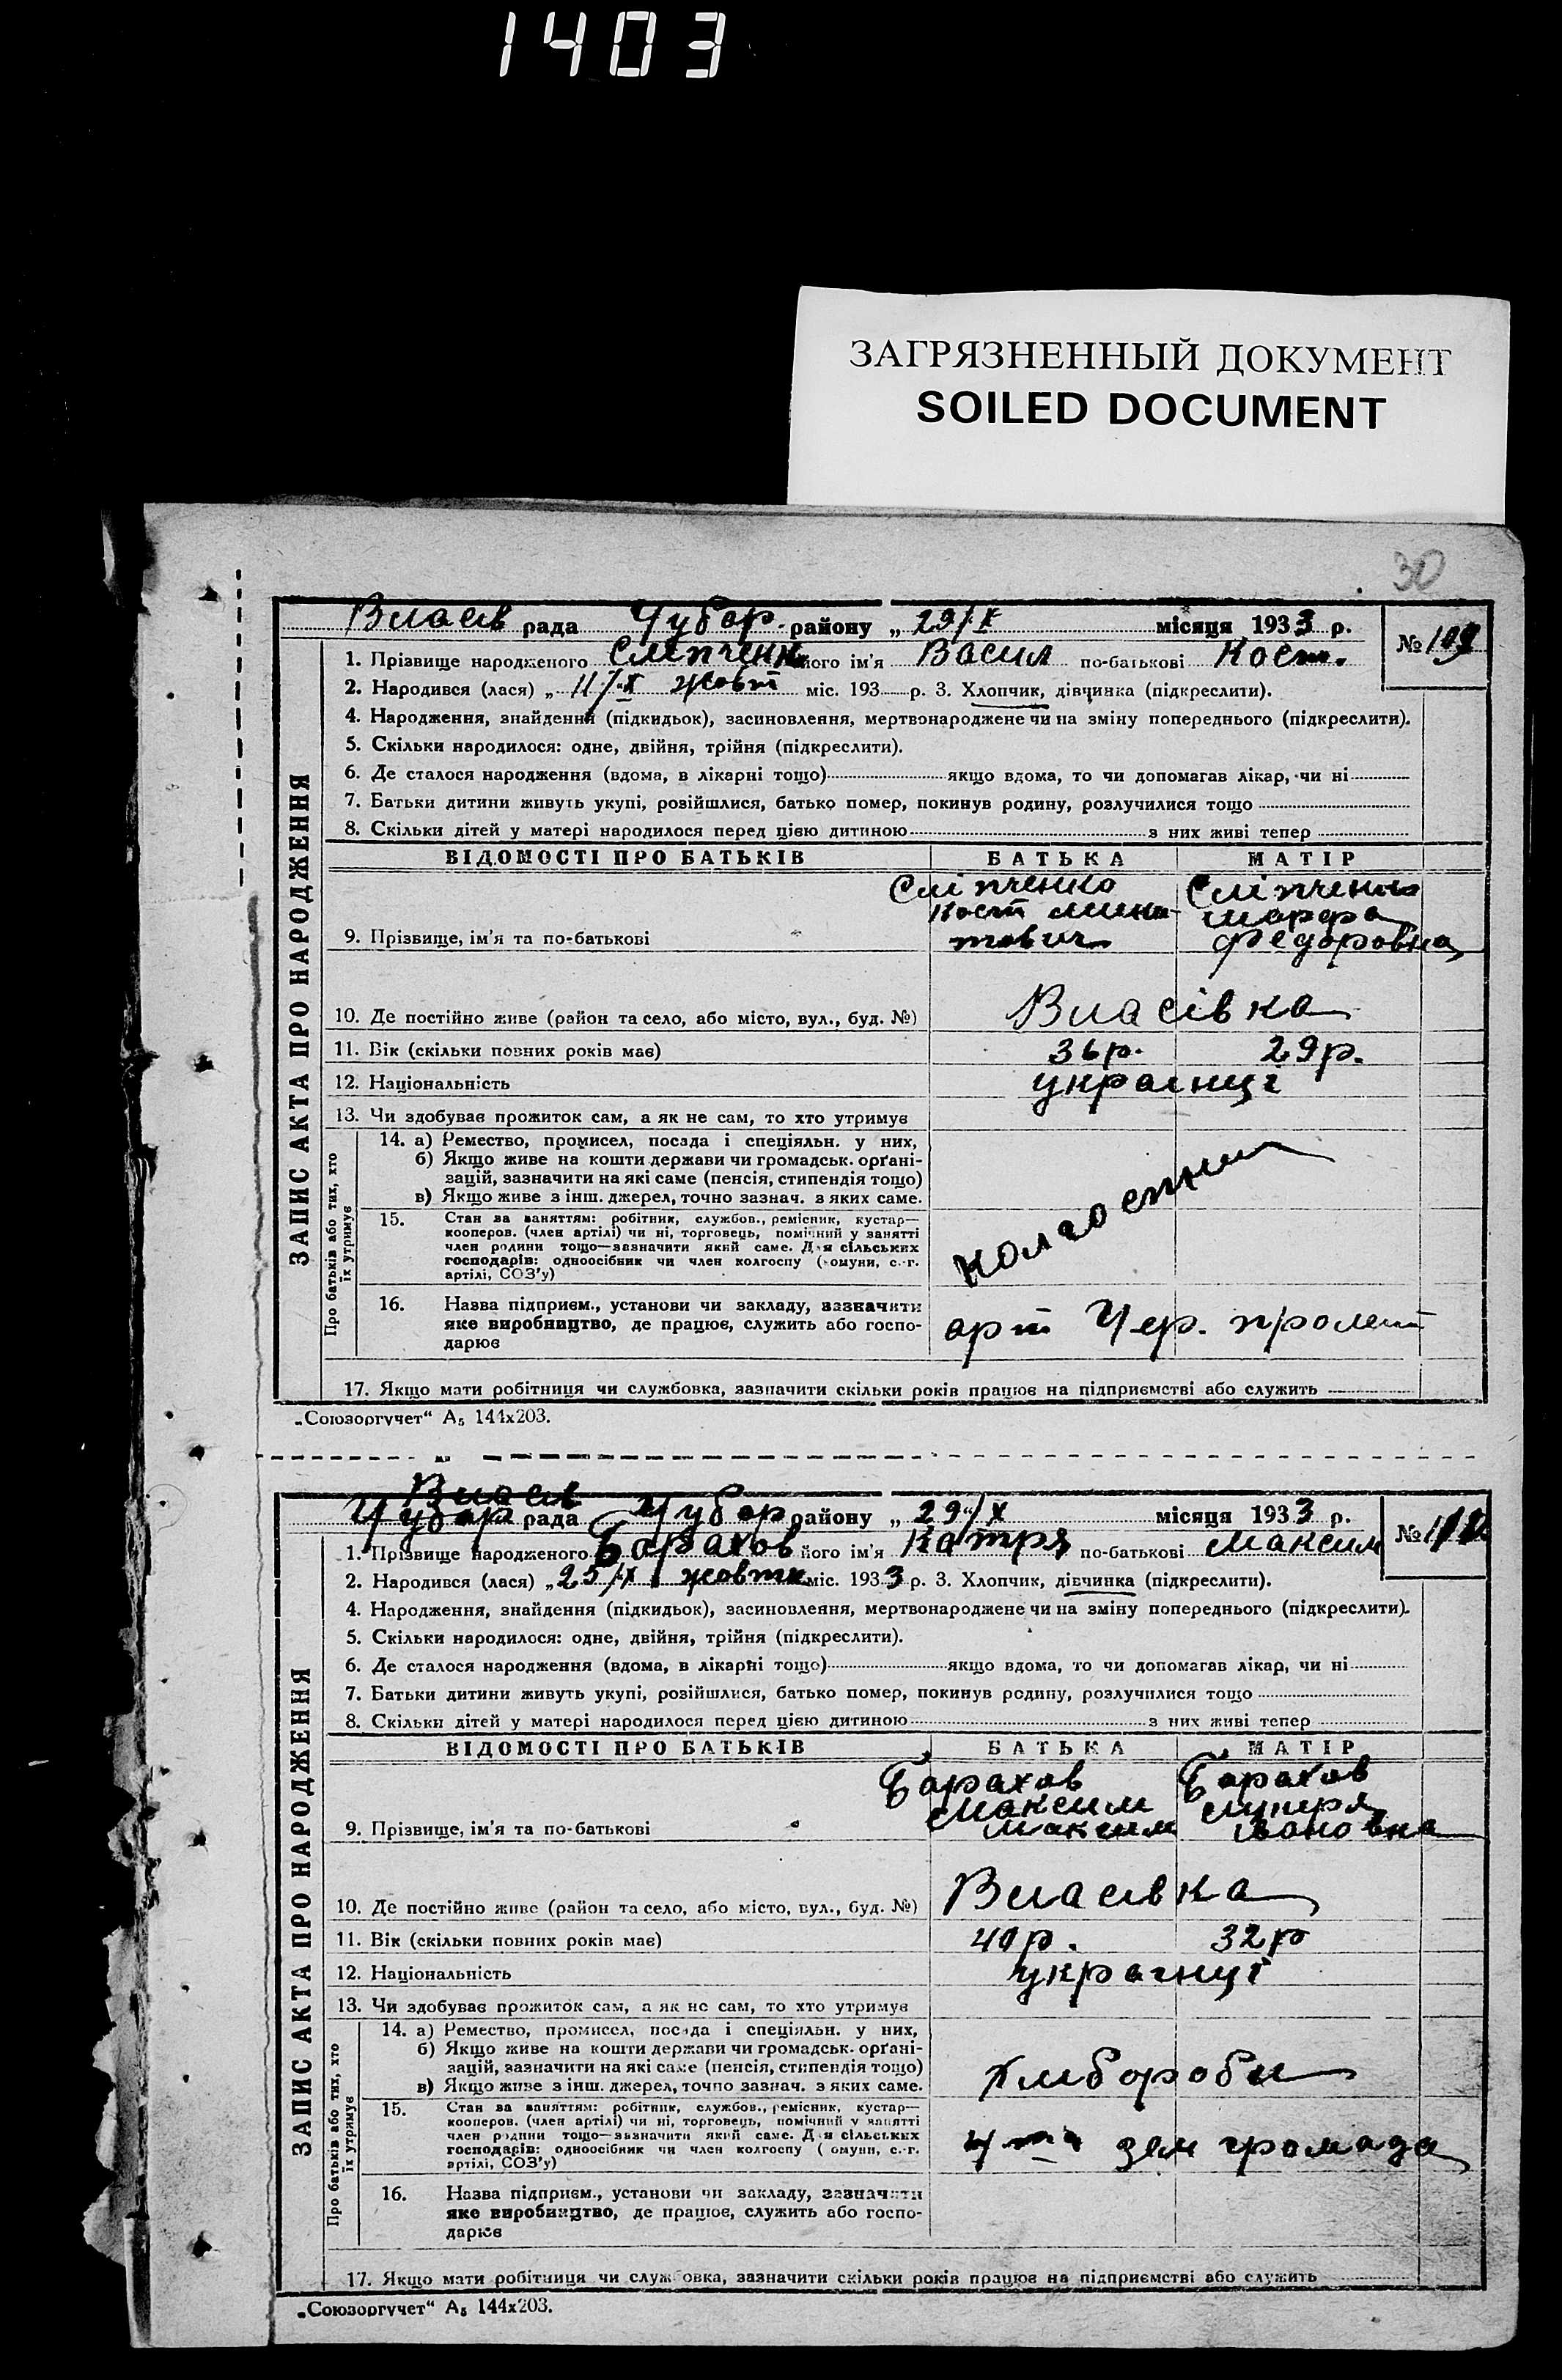 1403
ЗАГРЯЗНЕННЫЙ ДОКУМЕНТ
SOILED DOCUMENT
30
ЗАПИС АКТА ПРО НАРОДЖЕННЯ
Власів рада Чубар. району „ 29/X місяця 1933 р.
№ 109
1. Прізвище народженого Сліпченк його ім'я Васил по-батькові Кост.
2. Народився (лася) „ 11/X жовт міс. 193 р. 3. Хлопчик, дівчинка (підкреслити).
4. Народження, знайдення (підкидьок), засиновлення, мертвонароджене чи на зміну попереднього (підкреслити).
5. Скільки народилося: одне, двійня, трійня (підкреслити).
6. Де сталося народження (вдома, в лікарні тощо) якщо вдома, то чи допомагав лікар, чи ні
7. Батьки дитини живуть укупі, розійшлися, батько помер, покинув родину, розлучилися тощо
8. Скільки дітей у матері народилося перед цією дитиною з них живі тепер
ВІДОМОСТІ ПРО БАТЬКІВ БАТЬКА МАТІР
Сліпченко Сліпченко
Кост Мики- Марфа
9. Прізвище, ім'я та по-батькові тович Федоровна
10. Де постійно живе (район та село, або місто, вул., буд. №) Власівка
11. Вік (скільки повних років має) 36р. 29р.
12. Національність українці
13. Чи здобуває прожиток сам, а як не сам, то хто утримує
Про батьків або тих, хто
їх утримує
14. а) Ремество, промисел, посада і спеціяльн. у них,
б) Якщо живе на кошти держави чи громадськ. орґані-
зацій, зазначити на які саме (пенсія, стипендія тощо)
в) Якщо живе з інш. джерел, точно зазнач. з яких саме.
колгоспник
15. Стан за заняттям: робітник, службов., ремісник, кустар—
кооперов. (член артілі) чи ні, торговець, помічний у занятті
член родини тощо—зазначити який саме. Для сільських
господарів: одноосібник чи член колгоспу (комуни, с.-г.
артілі, СОЗ'у)
16. Назва підприєм., установи чи закладу, зазначити
яке виробництво, де працює, служить або госпо-
дарює
арт Чер. пролет
17. Якщо мати робітниця чи службовка, зазначити скільки років працює на підприємстві або служить
„Союзоргучет“ А₅ 144х203.
ЗАПИС АКТА ПРО НАРОДЖЕННЯ
Власів
Чубар рада Чубар району „ 29/X місяця 1933 р.
№
1. Прізвище народженого Барахов його ім'я Катря по-батькові Максим
2. Народився (лася) „ 25/X жовтн міс. 1933 р. 3. Хлопчик, дівчинка (підкреслити).
4. Народження, знайдення (підкидьок), засиновлення, мертвонароджене чи на зміну попереднього (підкреслити).
5. Скільки народилося: одне, двійня, трійня (підкреслити).
6. Де сталося народження (вдома, в лікарні тощо) якщо вдома, то чи допомагав лікар, чи ні
7. Батьки дитини живуть укупі, розійшлися, батько помер, покинув родину, розлучилися тощо
8. Скільки дітей у матері народилося перед цією дитиною з них живі тепер
ВІДОМОСТІ ПРО БАТЬКІВ БАТЬКА МАТІР
Барахов Барахов
Максим
9. Прізвище, ім'я та по-батькові Максим Івановна
10. Де постійно живе (район та село, або місто, вул., буд. №) Власівка
11. Вік (скільки повних років має) 40р. 32р
12. Національність українці
13. Чи здобуває прожиток сам, а як не сам, то хто утримує
Про батьків або тих, хто
їх утримує
14. а) Ремество, промисел, посада і спеціяльн. у них,
б) Якщо живе на кошти держави чи громадськ. орґані-
зацій, зазначити на які саме (пенсія, стипендія тощо)
в) Якщо живе з інш. джерел, точно зазнач. з яких саме.
Хлібороби
15. Стан за заняттям: робітник, службов., ремісник, кустар—
кооперов. (член артілі) чи ні, торговець, помічний у занятті
член родини тощо—зазначити який саме. Для сільських
господарів: одноосібник чи член колгоспу (комуни, с.-г.
артілі, СОЗ'у)
4 та зем громада
16. Назва підприєм., установи чи закладу, зазначити
яке виробництво, де працює, служить або госпо-
дарює
17. Якщо мати робітниця чи службовка, зазначити скільки років працює на підприємстві або служить
„Союзоргучет“ А₅ 144х203.